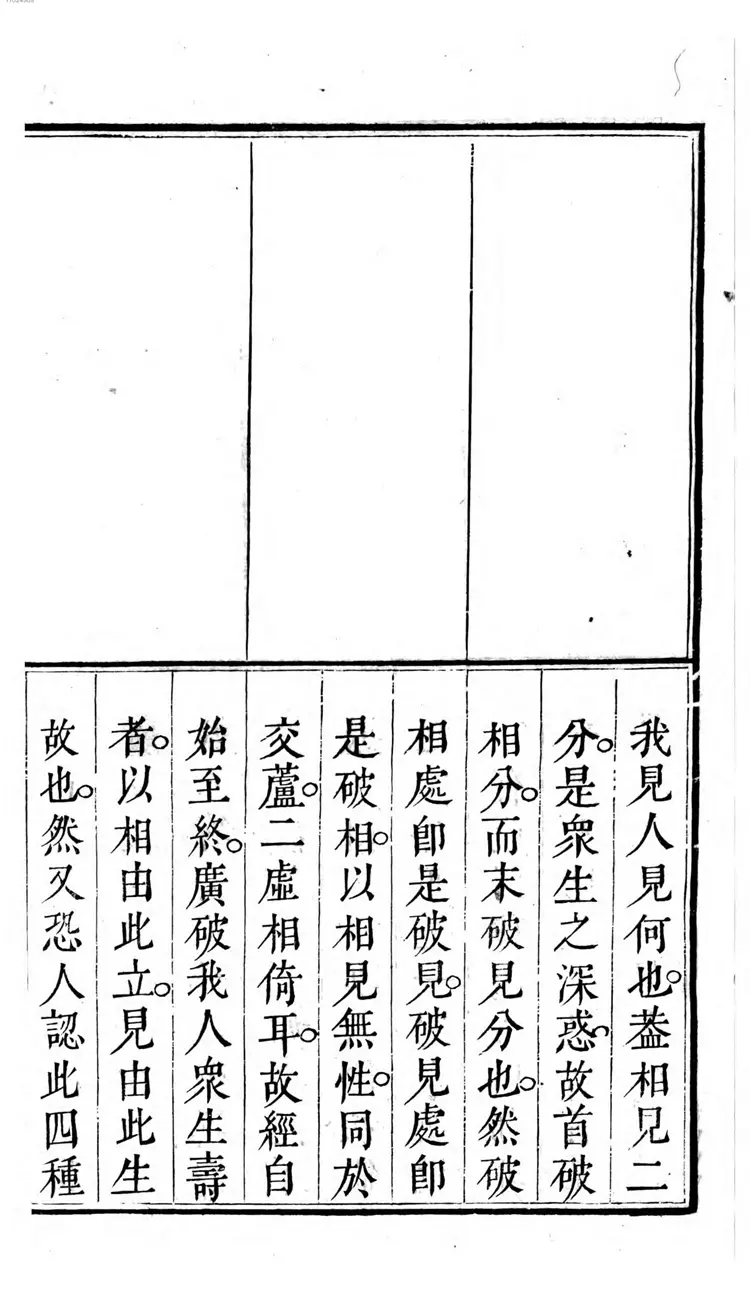 我見人見何也。葢相見二
分。是衆生之深惑。故首破
相分。而末破見分也。然破
相處卽是破見。破見處卽
是破相。以相見無性。同於
交蘆。二虛相倚耳。故經自
始至終。廣破我人衆生壽
者。以相由此立。見由此生
故也。然又恐人認此四種